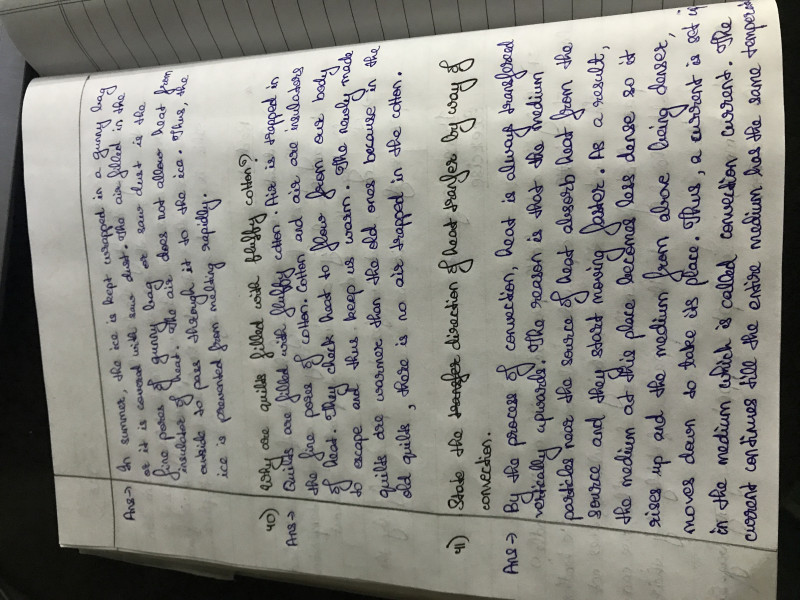 Ans→ In summer, the ice is kept wrapped in a gunny bag
or it is covered with saw dust. The air filled in the
fine pores of gunny bag or saw dust is the
insulator of heat. The air does not allow heat from
outside to pass through it to the ice. Thus, the
ice is prevented from melting rapidly.
40) Why are quilts filled with fluffy cotton?
Ans→ Quilts are filled with fluffy cotton. Air is trapped in
the fine pores of cotton. Cotton and air are insulators
of heat. They check heat to flow from our body
to escape and thus keep us warm. The newly made
quilts are warmer than the old ones because in the
old quilts, there is no air trapped in the cotton.
41) State the transfer direction of heat tranfer by way of
convection.
Ans→ By the process of convection, heat is always transfered
vertically upwards. The reason is that the medium
particles near the source of heat absorb heat from the
source and they start moving faster. As a result,
the medium at this place becomes less dense so it
rises up and the medium from above being denser,
moves down to take its place. Thus, a current is set up
in the medium which is called convection current. The
current continues till the entire medium has the same